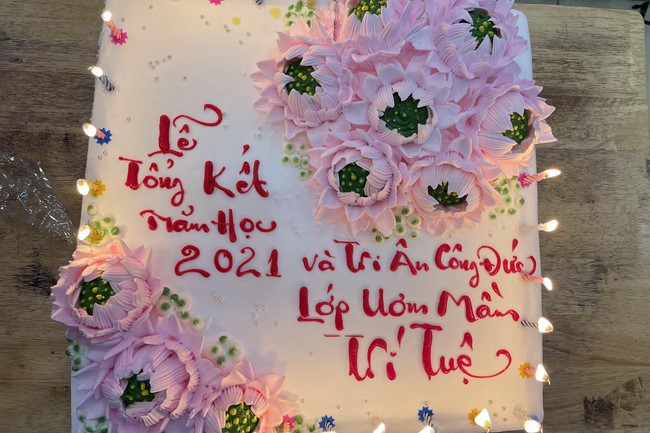 Lễ
Tổng Kết
Năm Học
2021 và Tri Ân Công Đức
Lớp Ươm Mầm
Trí Tuệ